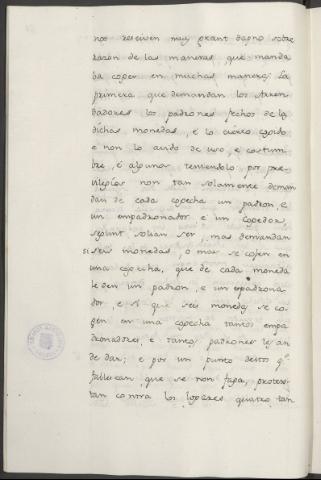 nos reseiven muy grant dapno sobre
razon de las maneras, que manda
ba coger en muchas maneras: La
primera que demandan los Arren
dadores los padrones fechos de la
dichas monedas, e lo
e non lo aviendo de uso, e costum
bre, é algunos teniendolo por pre
vilegios non tan solamente deman
dan de cada cogecha un padron, e
un empadronador e un cogedor,
segunt solian ser, mas demandan
si seis monedas, o mas se cojen en
una cogecha, que de cada moneda
le den un padron, e un enpadrona
dor, e si que seis monedas se co
gen en una cogecha tantos empa
dronadores, e tantos padrones les an
de dar; e por un punto destos q.e
fallescan, que se non faga, protes
tan contra los logares quatro tan